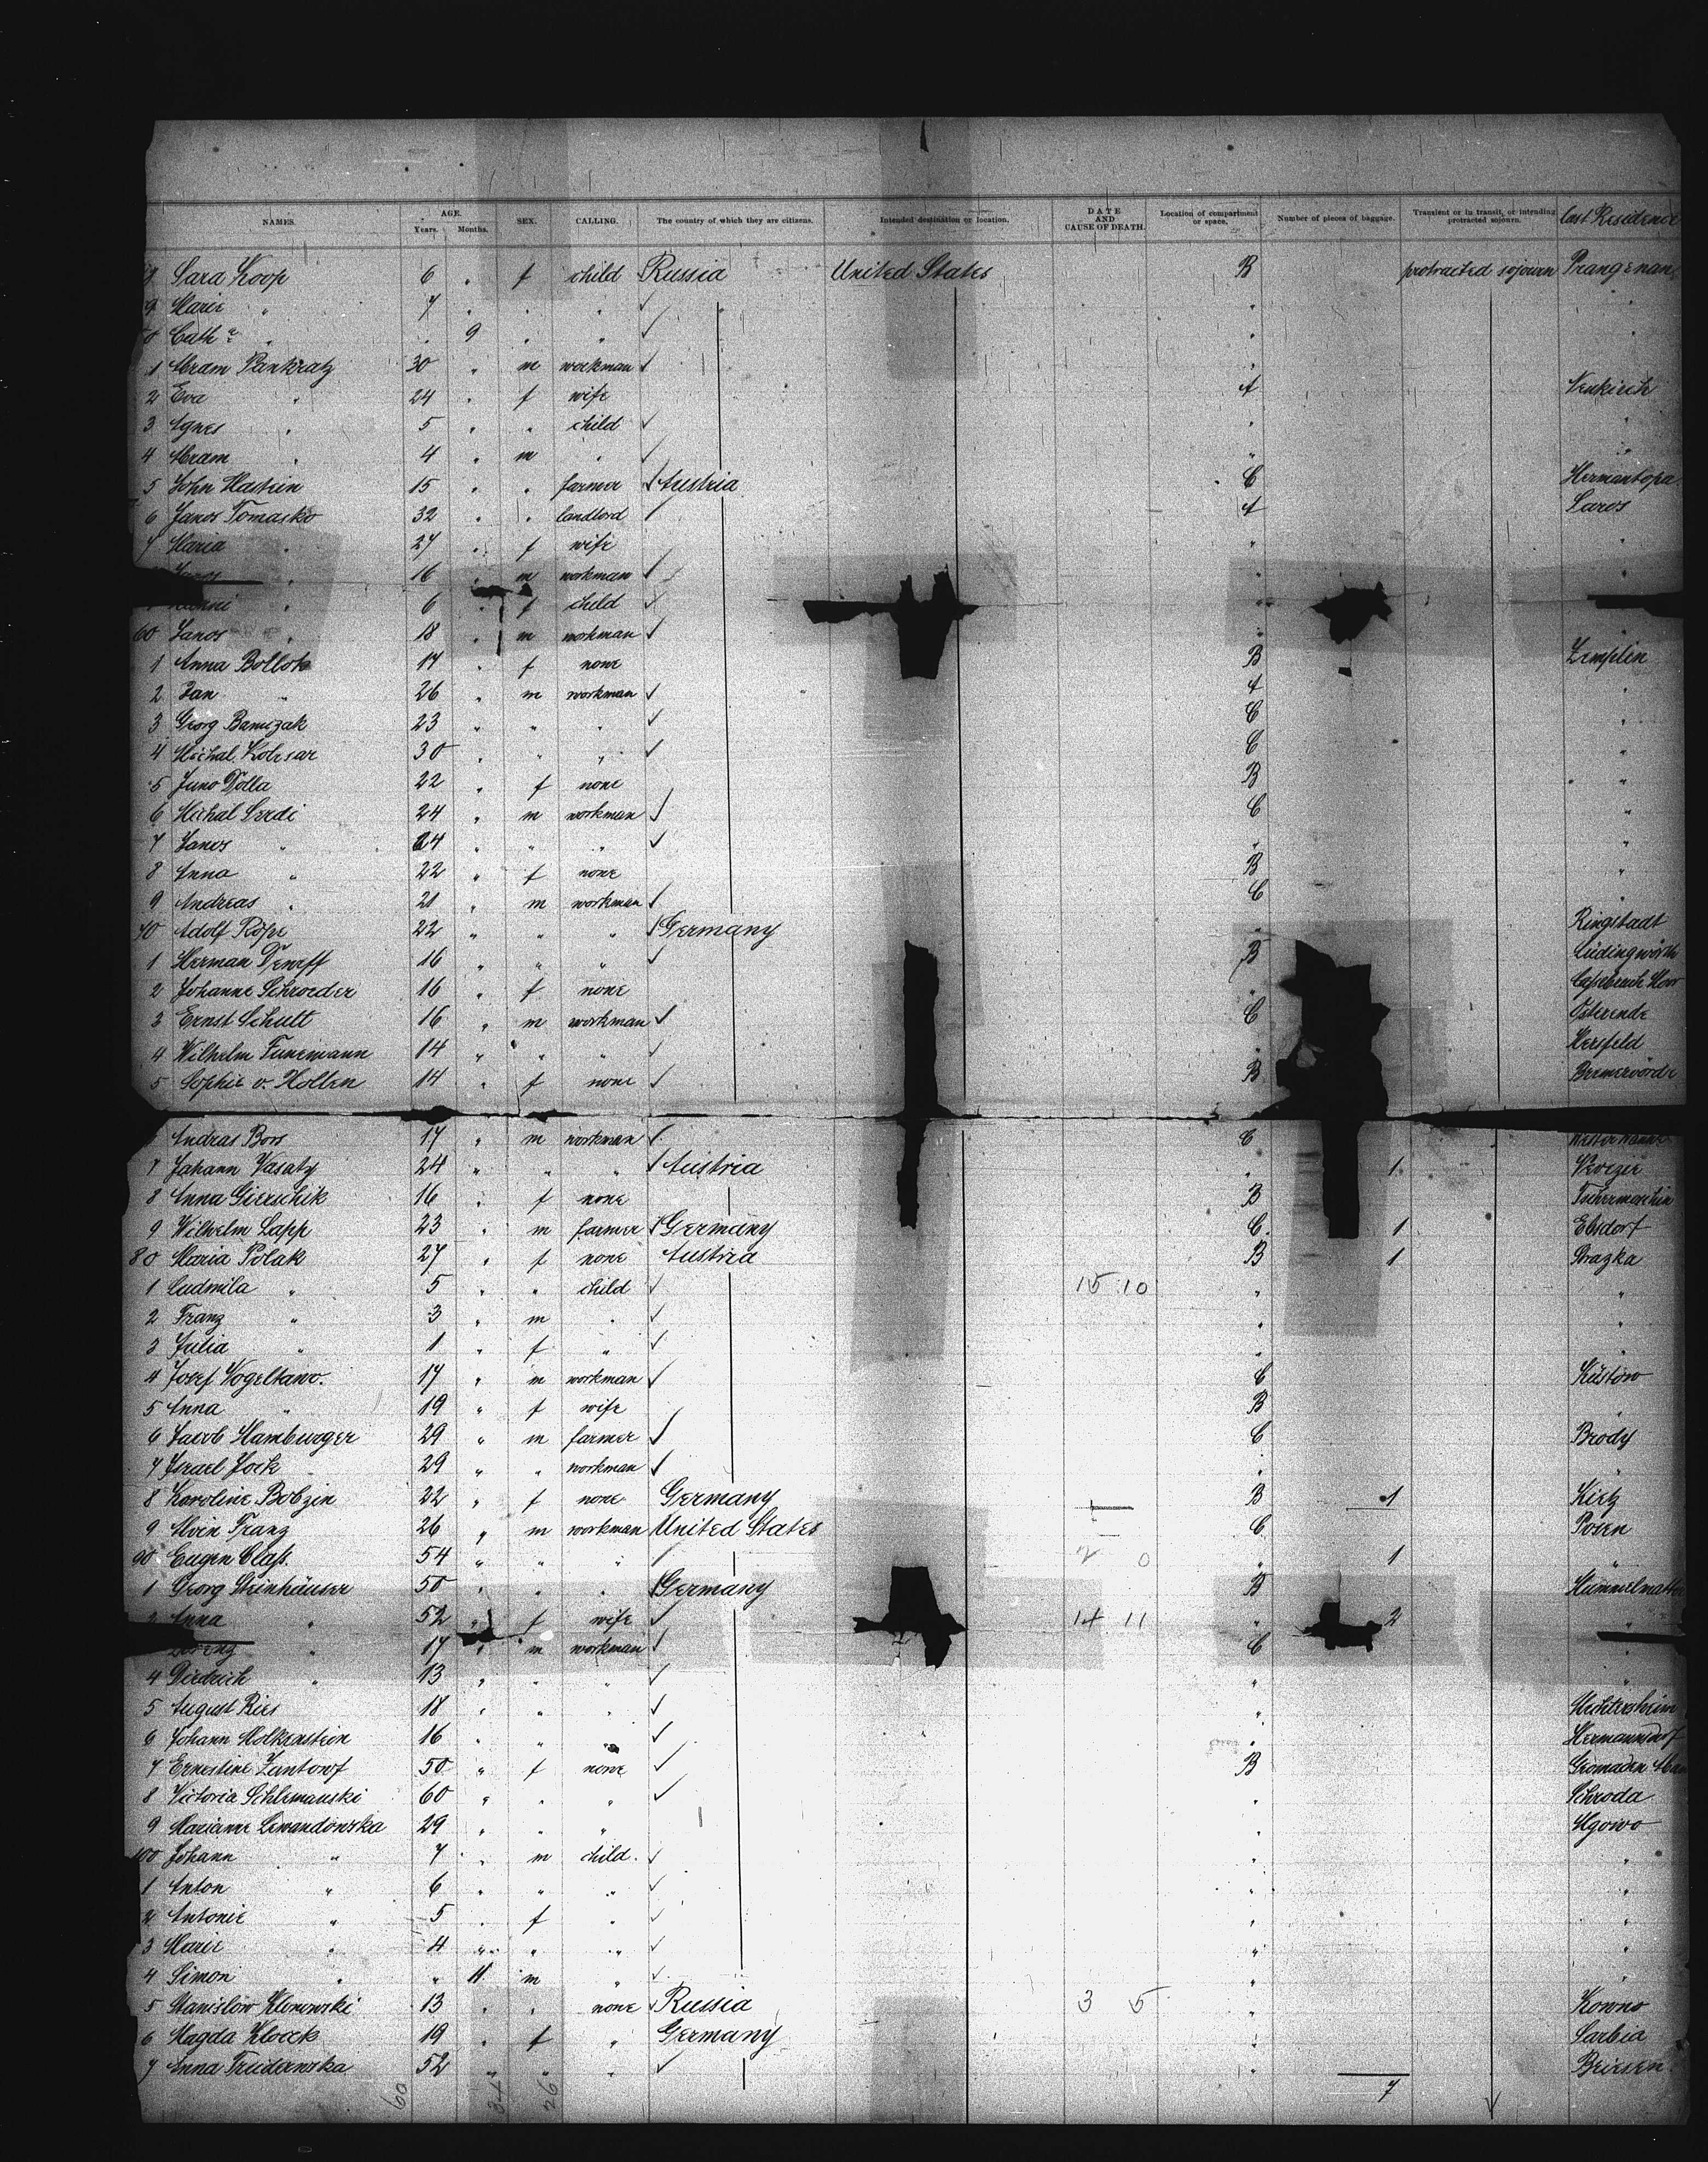 NAMES. AGE. Years. Months. SEX. CALLING. The country of which they are citizens. Intended destination or location. DATE AND CAUSE OF DEATH. Location of compartment or space. Number of pieces of baggage. Transient or in transit, or intending protracted sojourn. Last Residence
Sara Koop 6 " f child Russia United States B protracted sojourn Prangenau
9 Marie " 7 " " " "
Cath " 9 " "
1 Abram Pankratz 30 " m workman "
2 Eva " 24 " f wife A Neukirch
3 Agnes " 5 " " child " "
4 Abram " 4 " m " " "
5 John 15 " " farmer Austria C
6 Janos Tomasko 32 " " landlord A Saros
7 Maria " 27 " f wife " "
Janos " 16 " m workman " "
" 6 " f child "
60 Janos " 18 " m workman " "
1 Anna Bollok 17 " f none B Zemplin
2 Jan " 26 " m workman A "
3 Georg Bamczak 23 " " " C "
4 Michal Kolesar 30 " " " C "
5 Juno Dolla 22 " f none B "
6 Michal Serdi 24 " m workman C "
7 Janos " 24 " " " " "
8 Anna " 22 " f none B "
9 Andreas " 21 " m workman C "
70 Adolf Röpe 22 " " " Germany " Ringstadt
1 Herman 16 " " " B Lüdingworth
2 Johanne Schroeder 16 " f none "
3 Ernst Schult 16 " m workman C Osterende
4 Wilhelm Funemann 14 " " " " Hersfeld
5 Sophie v. Holten 14 " f none B Bremervörde
Andreas Bors 17 " m workman C
7 Johann Vasaty 24 " " " Austria " 1
8 Anna Gierschik 16 " f none B
9 Wilhelm Lapp 23 " m farmer Germany C 1 Ebsdorf
80 Maria Polak 27 " f none Austria B 1 Brazka
1 Ludmila " 5 " " child 15 10 " "
2 Franz " 3 " m " " "
3 Julia " 1 " f " " "
4 Josef 17 " m workman C
5 Anna " 19 " f wife B "
6 Jacob Hamburger 29 " m farmer C Brody
7 Israel Jock 29 " " workman " "
8 Karoline Bobzin 22 " f none Germany B 1 Kietz
9 Alvin Franz 26 " m workman United States C Posen
90 Eugen Class 54 " " " " 1 "
1 Georg Steinhäuser 50 " " " Germany B
2 Anna " 52 " f wife 14 11 " 2 "
" 17 " m workman C "
4 Diedrich " 13 " " " " "
5 August Ries 18 " " " " Mechtersheim
6 Johann Molkenstein 16 " " " " Hermannsdorf
7 Ernestine Zantowf 50 " f none B
8 Victoria Schlemanski 60 " " " " Schroda
9 Marianne Lewandowska 29 " " " "
100 Johann " 7 " m child " "
1 Anton " 6 " " " " "
2 Antonie " 5 " f " " "
3 Marie " 4 " " " " "
4 Simon " " 11 m " " "
5 Stanislow Klonowski 13 " " none Russia 3 5 " Kowno
6 Magda Klocek 19 " f " Germany " Sarbia
7 Anna 52 " " " " Briesen
60 34 26 7